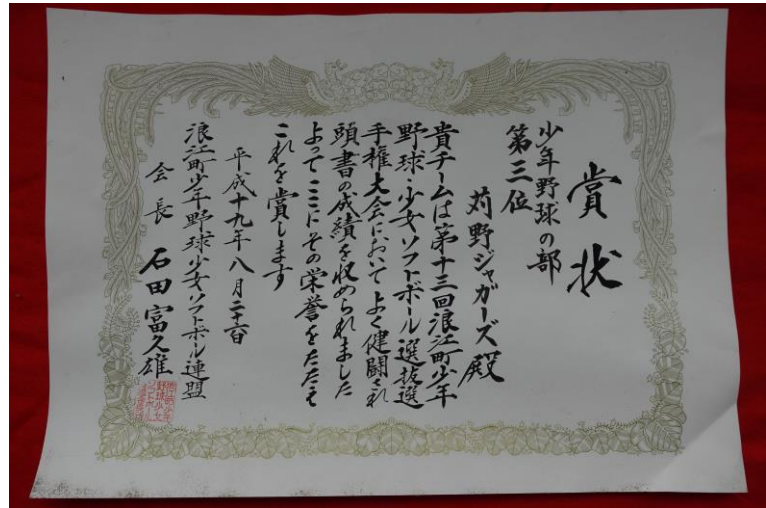 賞状
少年野球の部
第三位
苅野ジャガーズ殿
貴チームは第十三回浪江町少年
野球・少女ソフトボール選抜選
手権大会においてよく健闘され
頭書の成績を収められました
よってここにその栄誉をたたえ
これを賞します
平成十九年八月二十六日
浪江町少年野球少女ソフトボール連盟
会長 石田富久雄